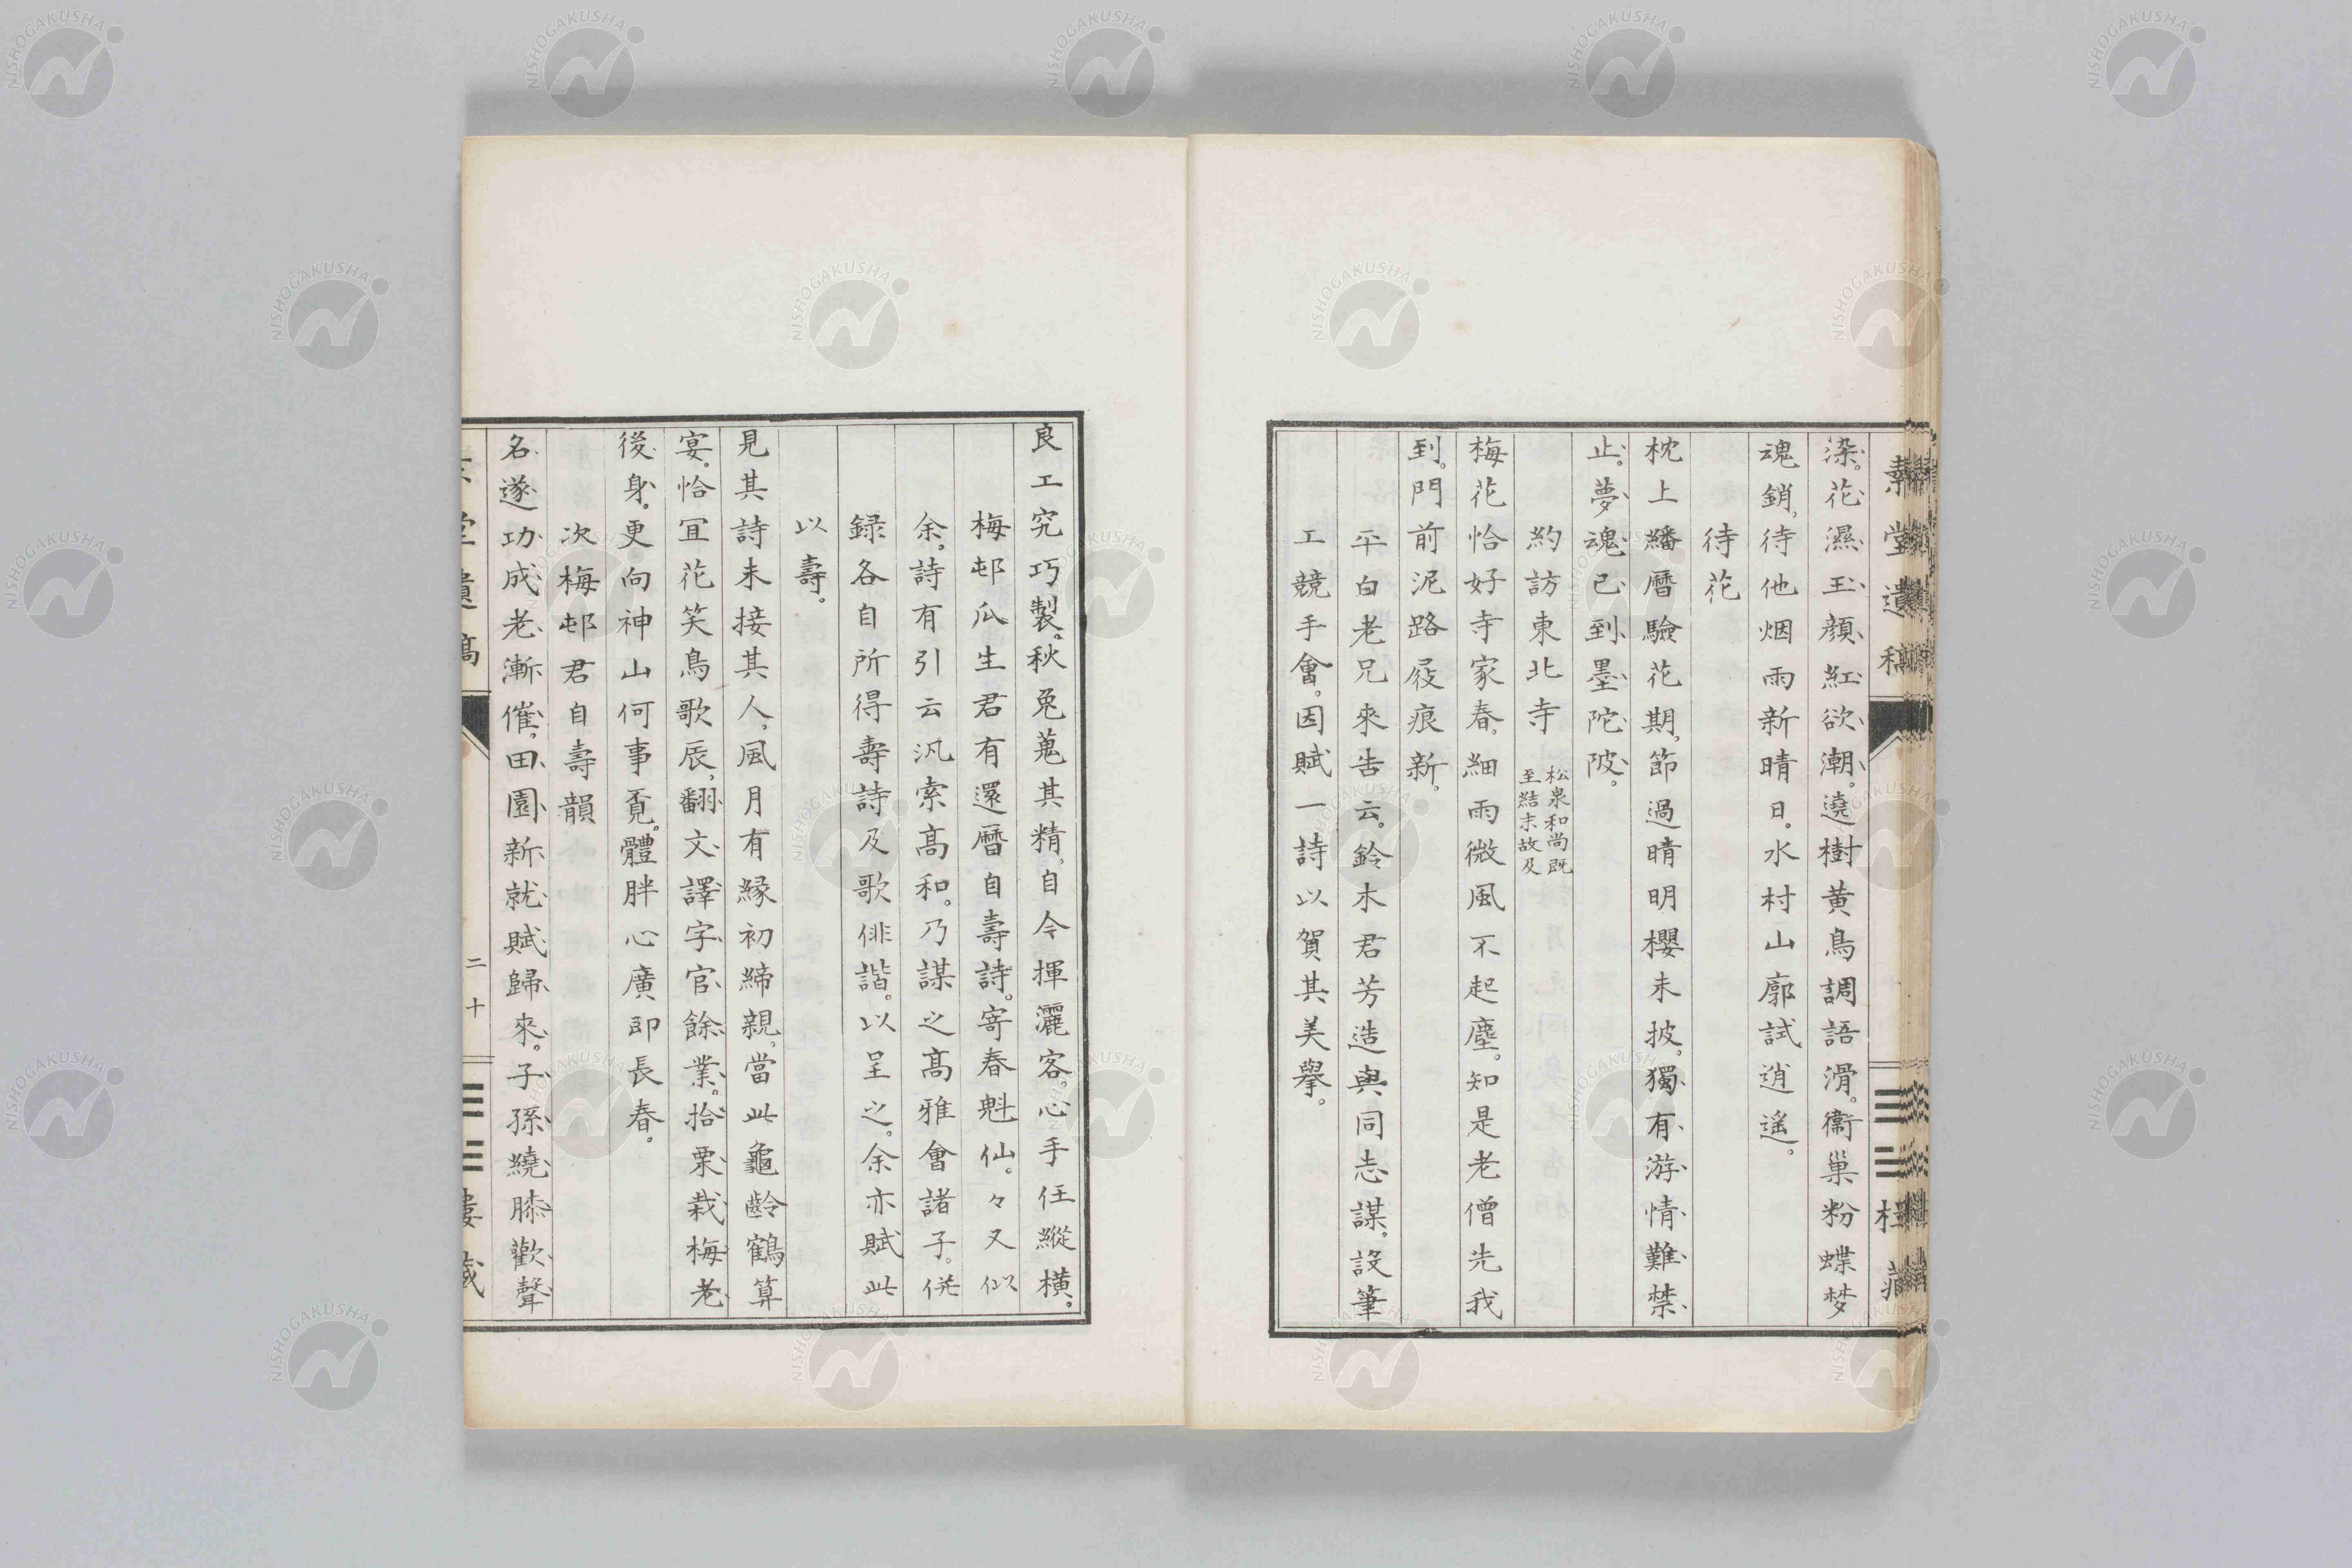 染。花濕玉顔紅欲潮。遶樹黄鳥調語滑。衞巢粉蝶梦
魂銷、待他烟雨新晴日。水村山廓試逍遥。
待花
枕上繙暦驗花期、節過晴明櫻未披。獨有游情難禁
止。夢魂已到墨陀陂。
約訪東北寺
松泉和尚既
至結末故及
梅花恰好寺家春、細雨微風不起塵。知是老僧先我
到。門前泥路屐痕新、
平白老兄來告云。鈴木君芳造與同志謀、設筆
工競手會。因賦一詩以賀其美擧。
素堂遺稿
良工究巧製。秋兔蒐其精、自今揮灑客。心手任縱橫。
梅邨瓜生君有還暦自壽詩。寄春魁仙。々又似
余。詩有引云汎索髙和。乃謀之髙雅會諸子。併
録各自所得壽詩及歌俳諧。以呈之。余亦賦此
以壽。
見其詩未接其人、風月有緣初締親、當此龜齡鶴算
宴。恰冝花笑鳥歌辰、翻文譯字官餘業。拾栗栽梅老
後身。更向神山何事覔。體胖心廣即長春。
次梅邨君自壽韻
名遂功成老漸催、田園新就賦歸來。子孫繞膝歡聲
二十